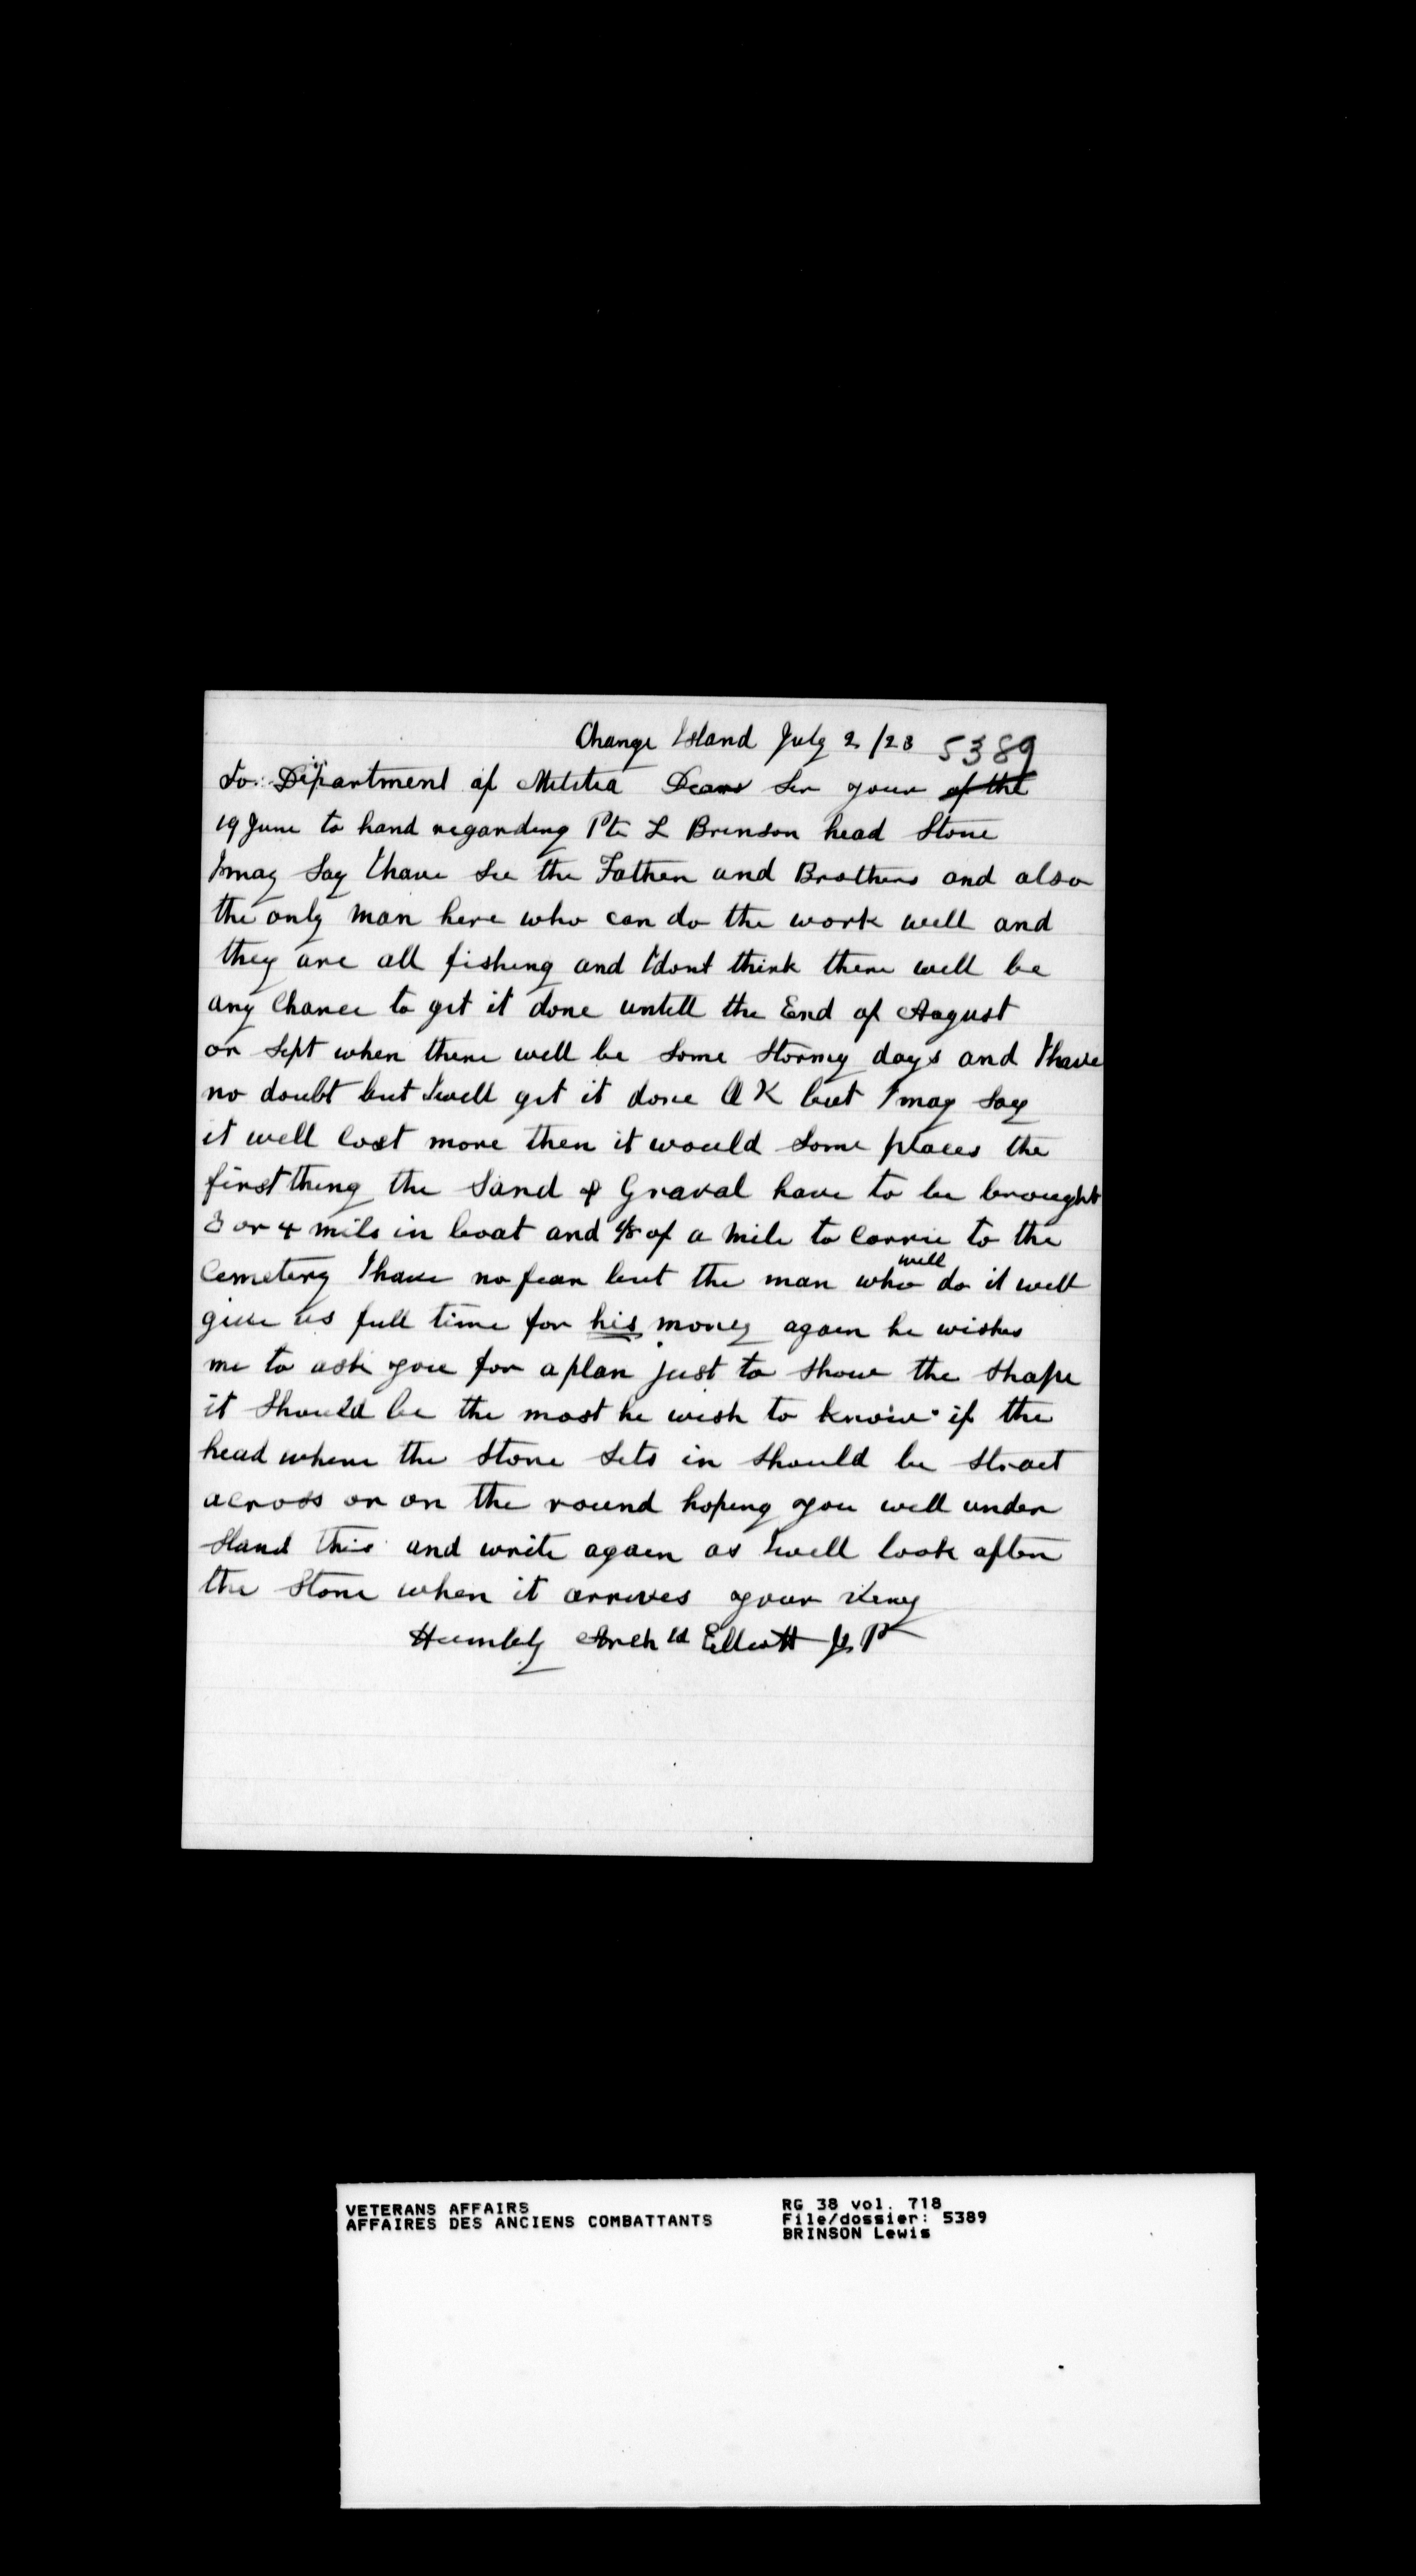 Change Island July 2/23 5389
To Department of Militia Dear Ser your of the
19 June to hand regarding Pte L Brinson head Stone
I may Say I have See the Father and Brothers and also
the only man here who can do the work well and
they are all fishing and I dont think there well be
any Chance to get it done untell the End of August
or Sept when there well be Some Stormy days and I have
no doubt but I well get it done O K but I may Say
it well Cost more then it would Some places the
first thing the Sand & Graval have to be brought
3 or 4 mils in boat and of a mile to Carrie to the
Cemetery I have no fear but the man who well do it well
give us full time for his money again he wishes
me to ask you for a plan just to Show the Shape
it Should be the most he wish to know if the
head where the Stone Sets in Should be Strait
across or on the round hoping you well under
Stand this and write again as I well look after
the Stone when it arrives your Very
Humbly Arch ld Elliott J. P
VETERANS AFFAIRS
AFFAIRES DES ANCIENS COMBATTANTS
RG 38 vol. 718
File/dossier: 5389
BRINSON Lewis